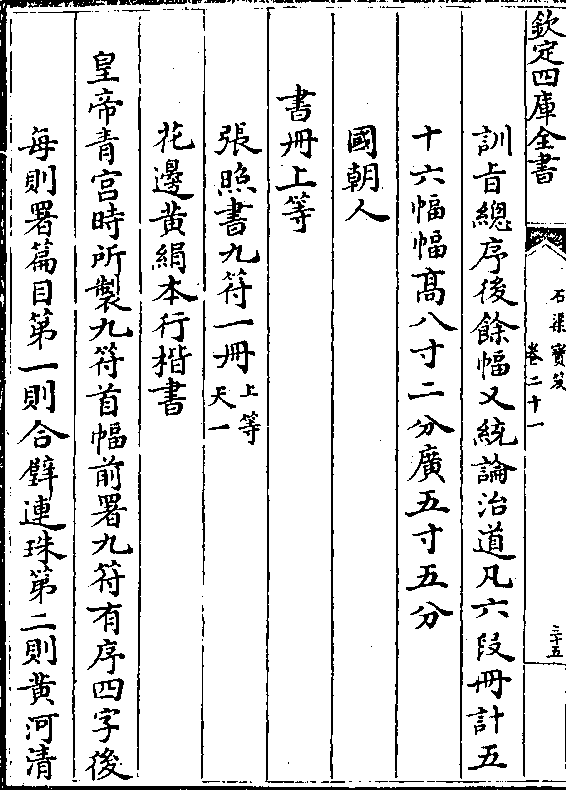 欽定四庫全書
石渠寶笈
卷二十一
三十五
訓旨總序後餘幅又統論治道凡六段冊計五
十六幅幅高八寸二分廣五寸五分
國朝人
書冊上等
張照書九符一冊上等天一
花邊黃絹本行楷書
皇帝青宮時所製九符首幅前署九符有序四字後
每則署篇目第一則合璧連珠第二則黃河清